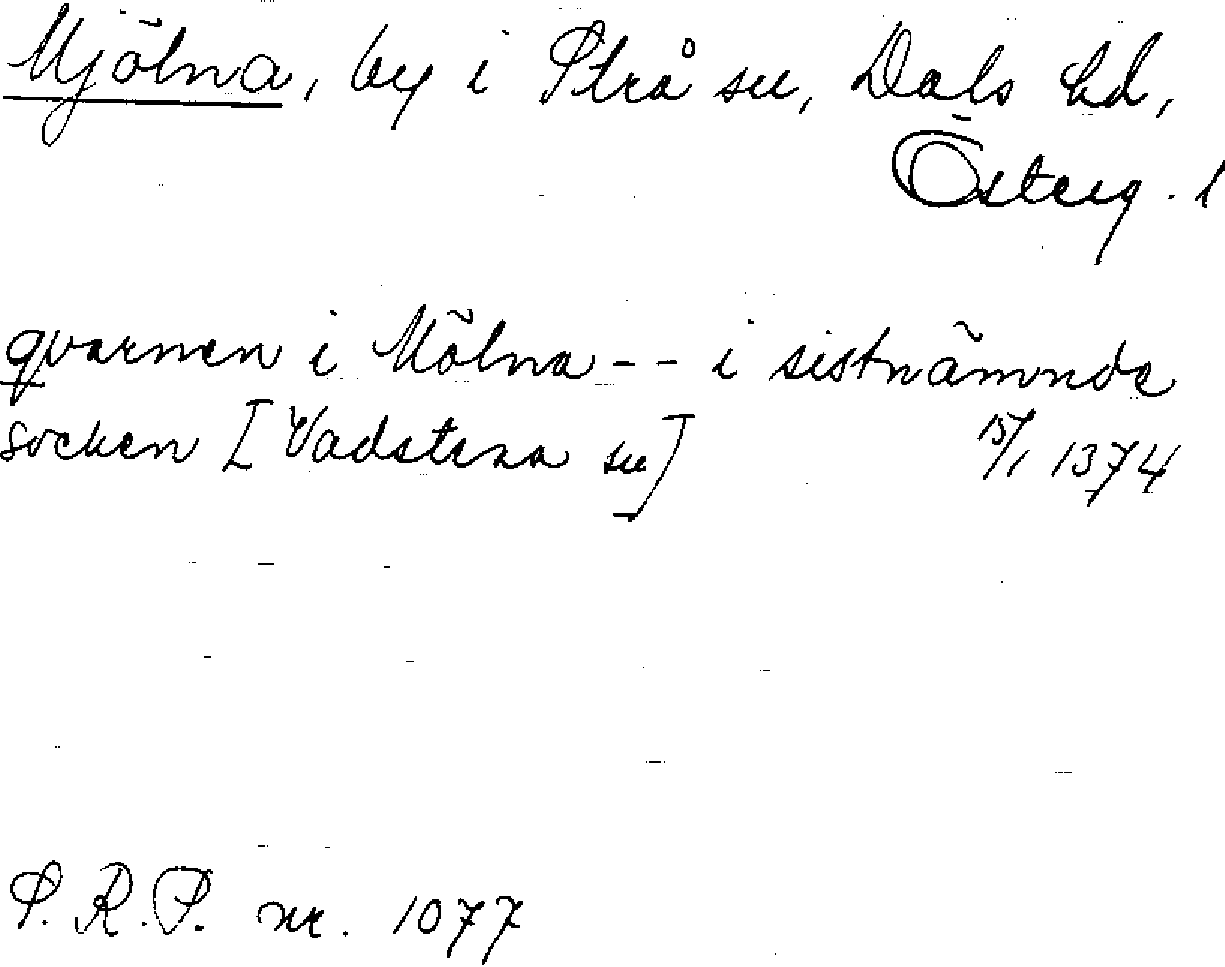 Mjölna, by i Strå sn, Dals hd,
Österg. l
qvarnen i Mölna -- i sistnämnde
socken [Vadstena sn] 15/1 1374
S. R. P. nr. 1077